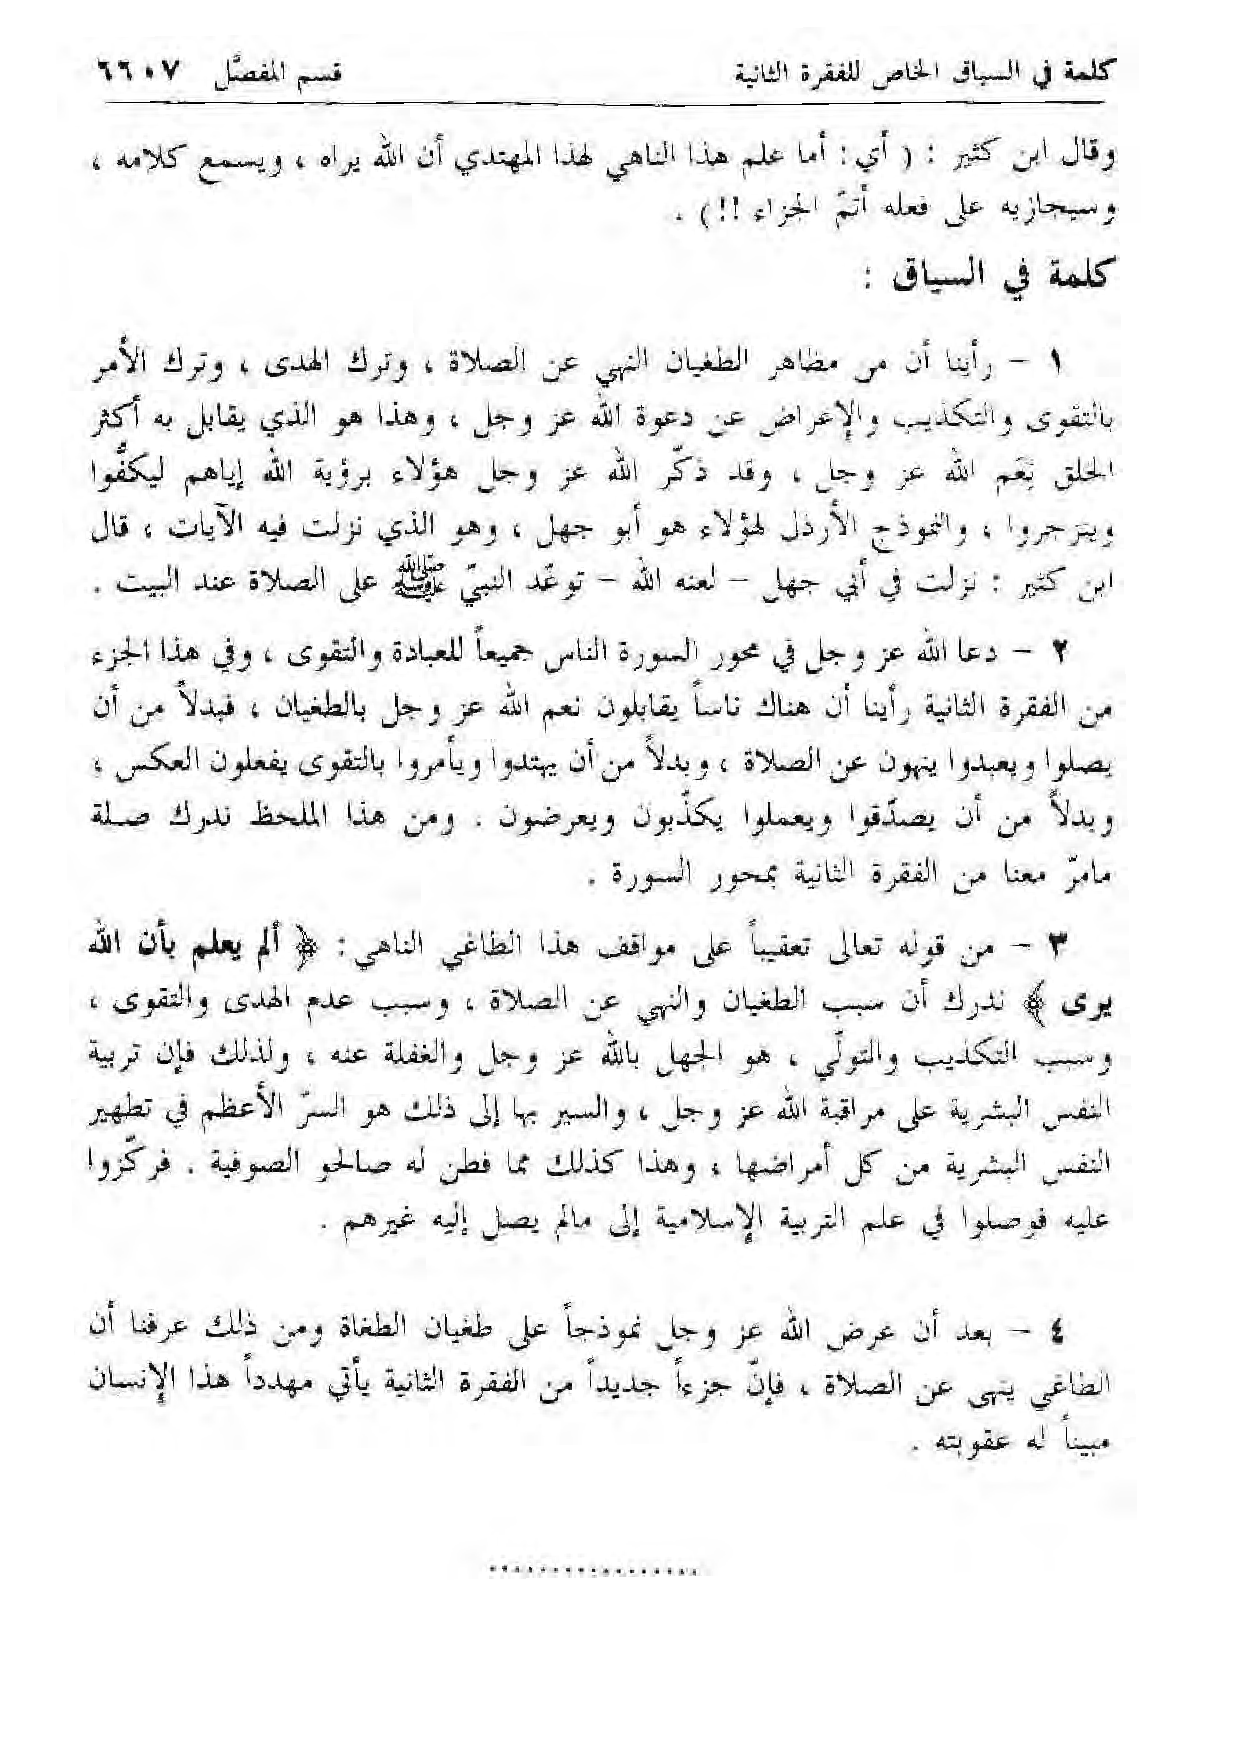 كلمة في السياق الخاص للفقرة الثانية قسم المفصَّل ٦٦٠٧
وقال ابن كثير : ( أي : أما علم هذا الناهي لهذا المهتدي أن الله يراه ، ويسمع كلامه ،
وسيجازيه على فعله أتمّ الجزاء !! ) .
كلمة في السياق :
١ – رأينا أن من مظاهر الطغيان النهي عن الصلاة ، وترك الهدى ، وترك الأمر
بالتقوى والتكذيب والإعراض عن دعوة الله عز وجل ، وهذا هو الذي يقابل به أكثر
الخلق نِعَم الله عز وجل ، وقد ذكّر الله عز وجل هؤلاء برؤية الله إياهم ليكفُّوا
وينزجروا ، والنموذج الأرذل لهؤلاء هو أبو جهل ، وهو الذي نزلت فيه الآيات ، قال
ابن كثير : نزلت في أبي جهل – لعنه الله – توعّد النبيّ ﷺ على الصلاة عند البيت .
٢ – دعا الله عز وجل في محور السورة الناس جميعاً للعبادة والتقوى ، وفي هذا الجزء
من الفقرة الثانية رأينا أن هناك ناساً يقابلون نعم الله عز وجل بالطغيان ، فبدلاً من أن
يصلوا ويعبدوا ينهون عن الصلاة ، وبدلاً من أن يهتدوا ويأمروا بالتقوى يفعلون العكس ،
وبدلاً من أن يصدّقوا ويعملوا يكذّبون ويعرضون . ومن هذا الملحظ ندرك صلة
مامرّ معنا من الفقرة الثانية بمحور السورة .
٣ – من قوله تعالى تعقيباً على مواقف هذا الطاغي الناهي : ﴿ ألم يعلم بأن الله
يرى ﴾ ندرك أن سبب الطغيان والنهي عن الصلاة ، وسبب عدم الهدى والتقوى ،
وسبب التكذيب والتولّي ، هو الجهل بالله عز وجل والغفلة عنه ، ولذلك فإن تربية
النفس البشرية على مراقبة الله عز وجل ، والسير بها إلى ذلك هو السرّ الأعظم في تطهير
النفس البشرية من كل أمراضها ، وهذا كذلك مما فطن له صالحو الصوفية . فركّزوا
عليه فوصلوا في علم التربية الإسلامية إلى مالم يصل إليه غيرهم .
٤ – بعد أن عرض الله عز وجل نموذجاً على طغيان الطغاة ومن ذلك عرفنا أن
الطاغي ينهى عن الصلاة ، فإنّ جزءاً جديداً من الفقرة الثانية يأتي مهدداً هذا الإنسان
مبيناً له عقوبته .
..................